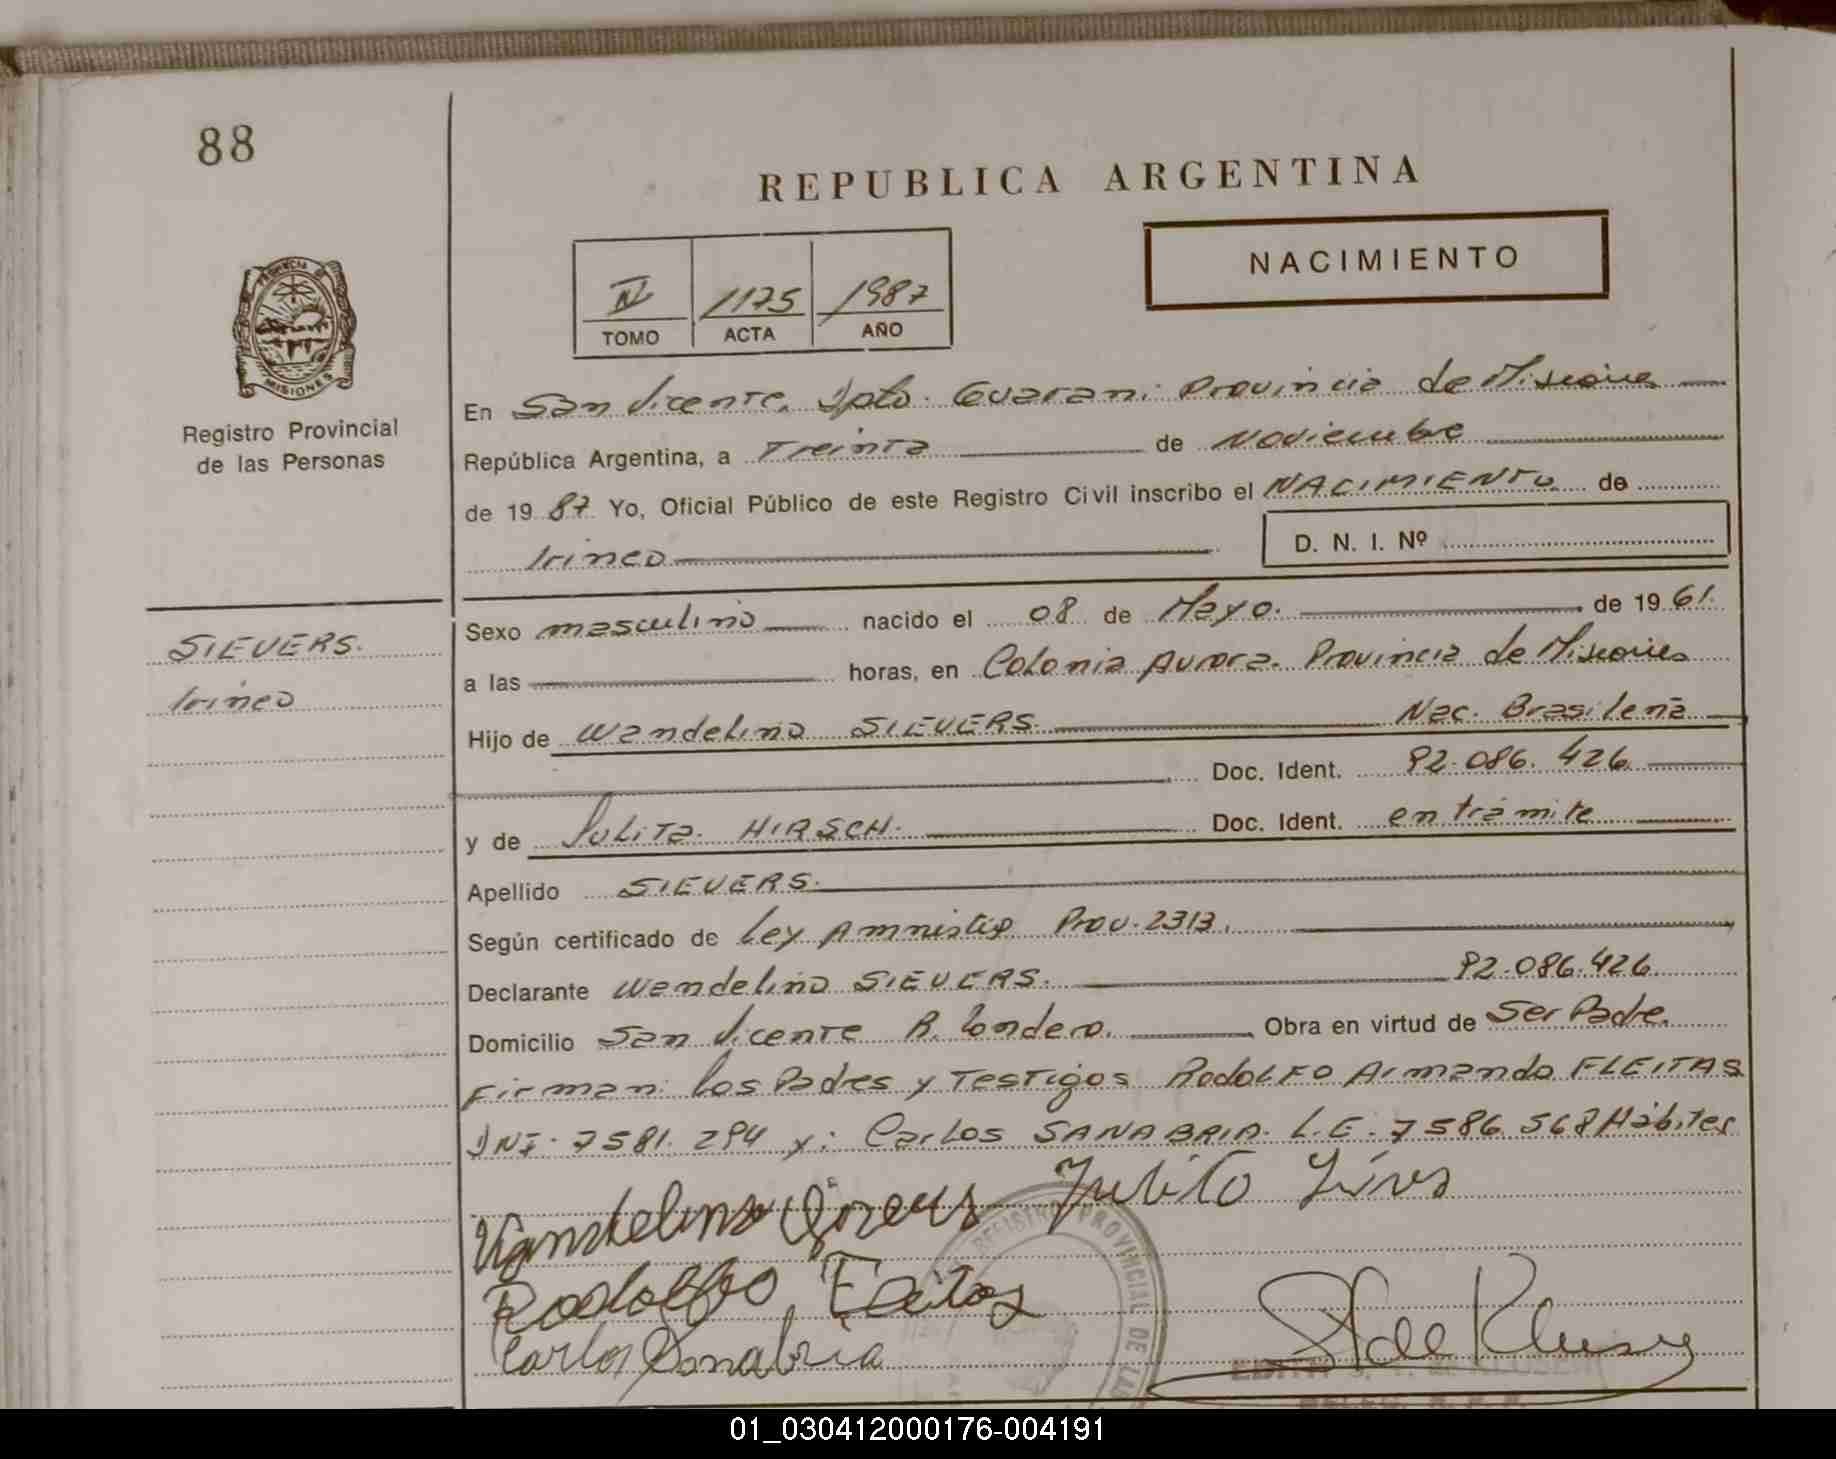 88
REPUBLICA ARGENTINA
NACIMIENTO
IV 1175 1987
TOMO ACTA AÑO
PROVINCIA DE
MISIONES
Registro Provincial
de las Personas
En San Vicente, Dpto. Guarani Provincia de Misiones
República Argentina, a Treinta de Noviembre
de 19 87 Yo, Oficial Público de este Registro Civil inscribo el NACIMIENTO de
Irineo D. N. I. Nº
SIEVERS.
Irineo
Sexo masculino nacido el 08 de Mayo. de 19 61.
a las horas, en Colonia Aurora. Provincia de Misiones
Hijo de Wandelino SIEVERS. Nac. Brasileña
Doc. Ident. 92.086.426
y de Julita HIRSCH. Doc. Ident. en trámite
Apellido SIEVERS.
Según certificado de Ley Amnistia Prov. 2313.
Declarante Wendelino SIEVERS. 92.086.426
Domicilio San Vicente B. Obra en virtud de Ser Padre.
Firman: los Padres y Testigos RODOLFO Armando FLEITAS
DNI: 7581.294 y: Carlos SANABRIA. L.E. 7586.568 Hábiles
REGISTRO PROVINCIAL DE LAS
Rodolfo Fleitas
Carlos Sanabria
01_030412000176-004191